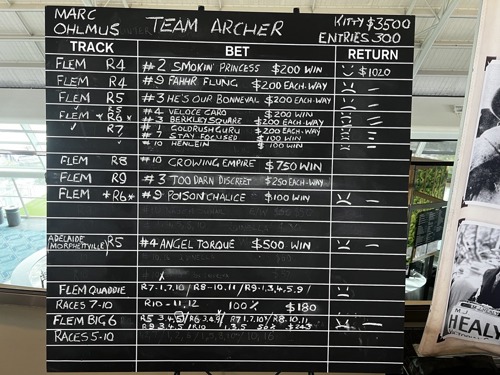 MARC OHLMUS TEAM ARCHER KITTY $3500
ENTRIES 300
TRACK BET RETURN
FLEM R4 #2 SMOKIN' PRINCESS $200 WIN $1020
FLEM R4 #9 FAHHR FLUNG $200 EACH-WAY —
FLEM R5 #3 HE'S OUR BONNEVAL $200 EACH-WAY —
#4 VELOCE CARO $200 WIN
FLEM *R6* #3 BERKLEY SQUARE $200 EACH-WAY —
R7 #1 GOLDRUSH GURU $200 EACH-WAY
#7 STAY FOCUSED $100 WIN
#10 HENLEIN $100 WIN —
FLEM R8 #10 GROWING EMPIRE $750 WIN
FLEM R9 #3 TOO DARN DISCREET $250 EACH-WAY
FLEM *R6* #9 POISON CHALICE $100 WIN —
ADELAIDE (MORPHETTVILLE) R5 #4 ANGEL TORQUE $500 WIN —
FLEM QUADDIE R7-1,7,10/ R8-10,11/ R9-1,3,4,5,9/
RACES 7-10 R10-11,12 100% $180
FLEM BIG 6 R5 3,4,5/R6 3,4,9/ R7 1,7,10/ R8 10,11 —
R9 3,4,5 /R10 1,3,5 50% $243
RACES 5-10
HEALY